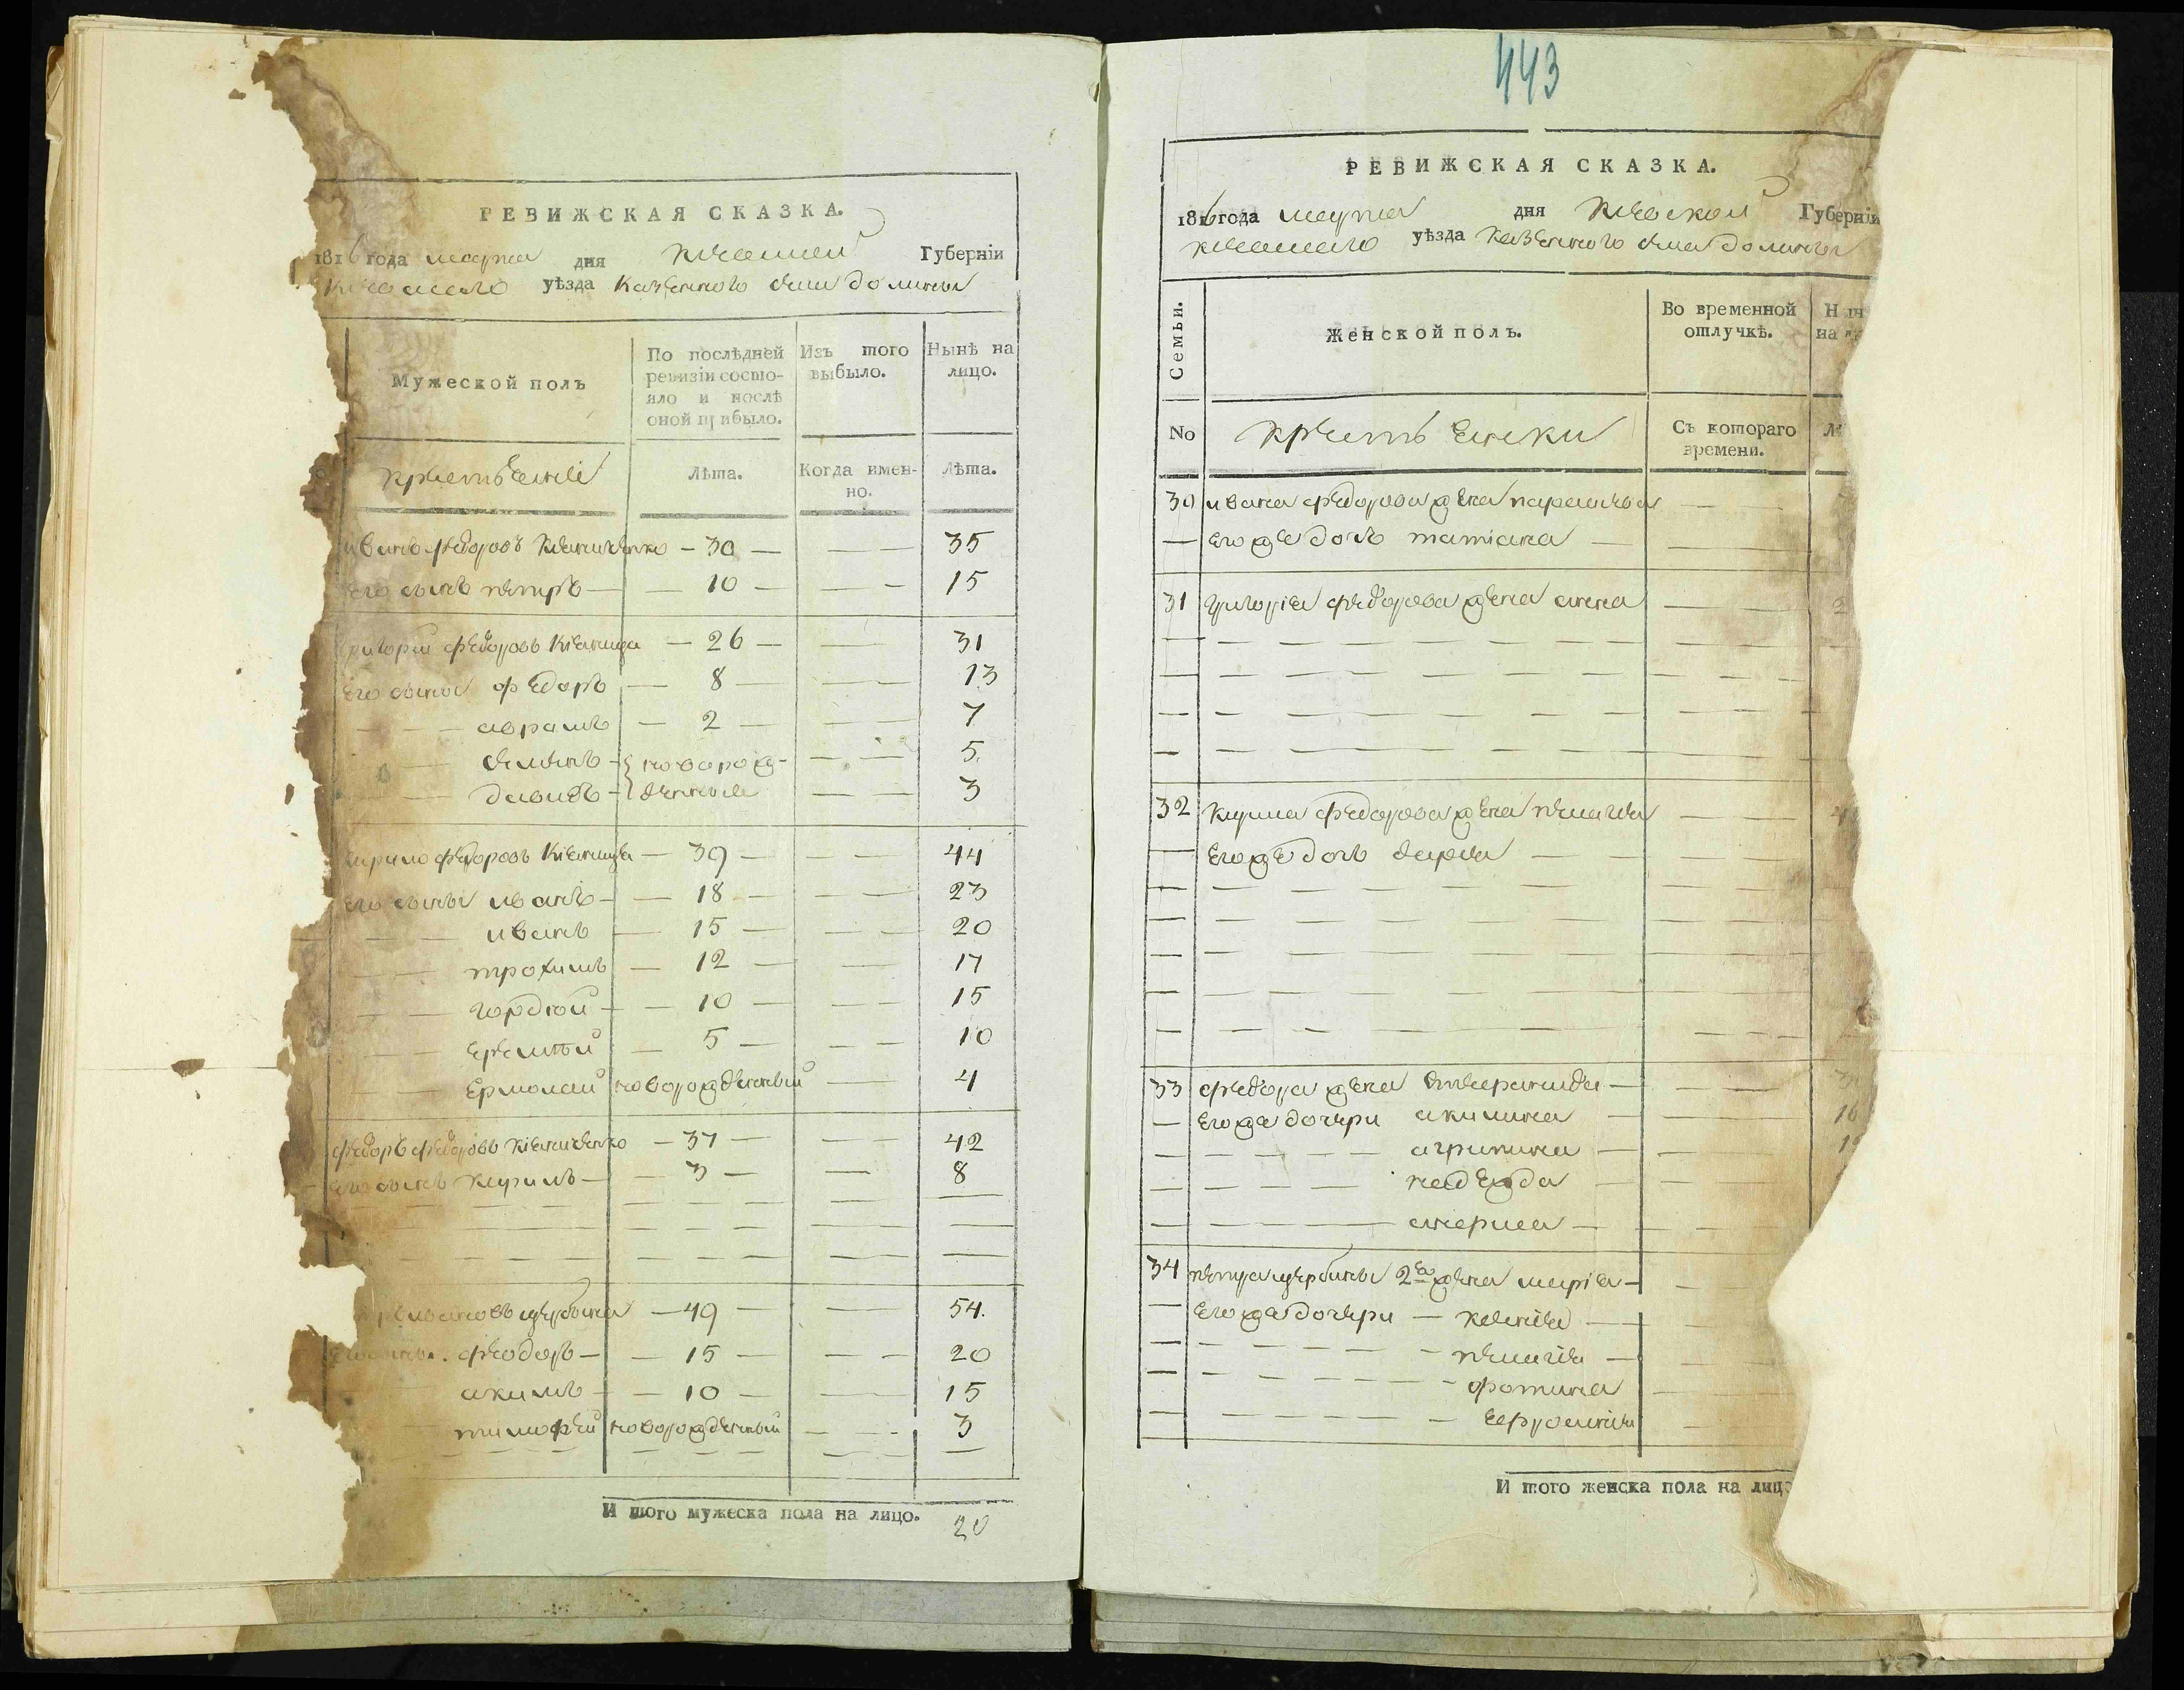 РЕВИЖСКАЯ СКАЗКА.
1816 года марта дня Киевской Губерніи
Киевского уѣзда Казенного села долины
Мужеской полъ
По послѣдней ревизіи состояло и послѣ оной прибыло.
Изъ того выбыло.
Нынѣ на лицо.
крестьяне
Лѣта.
Когда именно.
Лѣта.
иванъ федоровъ — 30 — — — 35
его сынъ петръ — — 10 — — — 15
григорий федоровъ — 26 — — 31
его сыны федоръ — 8 — — — 13
— — аврамъ — 2 — — — 7
— семенъ — новорож- — — 5.
— давидъ — денные — — 3
кирило федоровъ — 39 — — — 44
его сыны иванъ — — 18 — — — 23
— — иванъ — 15 — — — 20
— — трохимъ — 12 — — 17
— — гордѣй — — 10 — — — 15
— — еремѣй — 5 — — — 10
— — ермолай новорожденный — 4
федоръ федоровъ — 37 — — 42
его сынъ кирилъ — — 3 — — 8
ивановъ щербина — 49 — — 54.
феодоръ — — 15 — — 20
акимъ — — 10 — — 15
тимофей новорожденный — — 3
И того мужеска пола на лицо. 20
443
РЕВИЖСКАЯ СКАЗКА.
1816 года марта дня Киевской Губерніи
киевского уѣзда казенного села долины
Семьи.
Женской полъ.
Во временной отлучкѣ.
Н
на
No
крестьянки
Съ котораго времени.
30 ивана федорова жена — —
— его же дочь татіана — —
31 григорія федорова жена анна — — 2
32 кирила федорова жена пелагея — — 4
— его же дочь дарья — —
33 федора жена —
— его же дочери акилина — 16
— — — агрипина —
— — — надежда —
— — —
34 петра щербины 2я жена марія —
— его же дочери — ксенія —
— — — пелагія —
— — — фотина —
— — — ефросинія
И того женска пола на лицо